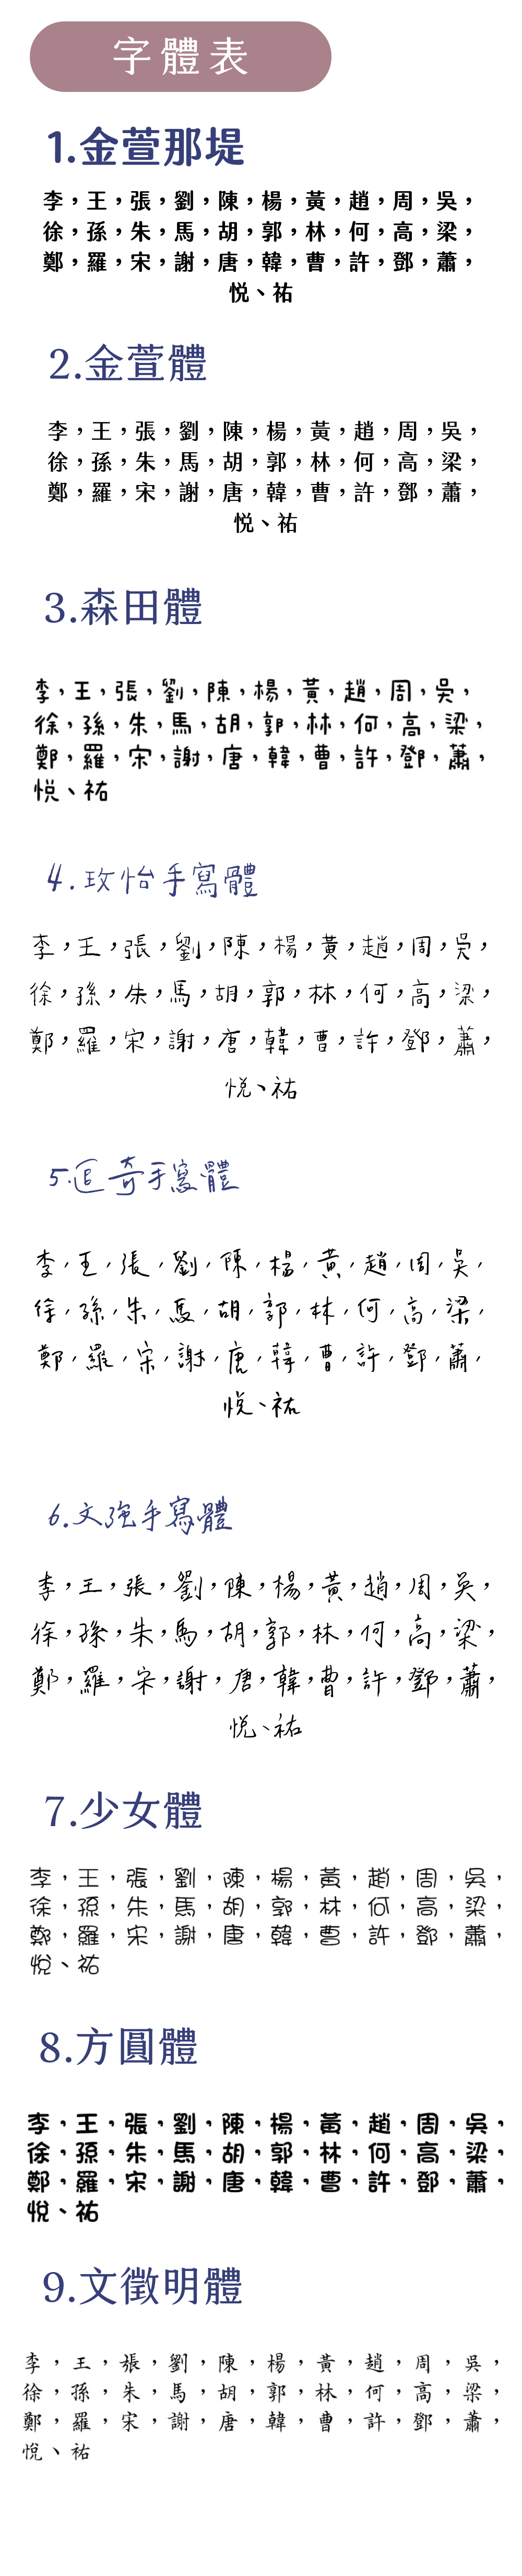 字體表
1.金萱那堤
李，王，張，劉，陳，楊，黃，趙，周，吳，
徐，孫，朱，馬，胡，郭，林，何，高，梁，
鄭，羅，宋，謝，唐，韓，曹，許，鄧，蕭，
悦、祐
2.金萱體
李，王，張，劉，陳，楊，黃，趙，周，吳，
徐，孫，朱，馬，胡，郭，林，何，高，梁，
鄭，羅，宋，謝，唐，韓，曹，許，鄧，蕭，
悦、祐
3.森田體
李，王，張，劉，陳，楊，黃，趙，周，吳，
徐，孫，朱，馬，胡，郭，林，何，高，梁，
鄭，羅，宋，謝，唐，韓，曹，許，鄧，蕭，
悅、祐
4.玫怡手寫體
李，王，張，劉，陳，楊，黃，趙，周，吳，
徐，孫，朱，馬，胡，郭，林，何，高，梁，
鄭，羅，宋，謝，唐，韓，曹，許，鄧，蕭，
悅、祐
5.追奇手寫體
李，王，張，劉，陳，楊，黃，趙，周，吳，
徐，孫，朱，馬，胡，郭，林，何，高，梁，
鄭，羅，宋，謝，唐，韓，曹，許，鄧，蕭，
悅、祐
6.文強手寫體
李，王，張，劉，陳，楊，黃，趙，周，吳，
徐，孫，朱，馬，胡，郭，林，何，高，梁，
鄭，羅，宋，謝，唐，韓，曹，許，鄧，蕭，
悅、祐
7.少女體
李，王，張，劉，陳，楊，黃，趙，周，吳，
徐，孫，朱，馬，胡，郭，林，何，高，梁，
鄭，羅，宋，謝，唐，韓，曹，許，鄧，蕭，
悅、祐
8.方圓體
李，王，張，劉，陳，楊，黃，趙，周，吳，
徐，孫，朱，馬，胡，郭，林，何，高，梁，
鄭，羅，宋，謝，唐，韓，曹，許，鄧，蕭，
悅、祐
9.文徵明體
李，王，張，劉，陳，楊，黃，趙，周，吳，
徐，孫，朱，馬，胡，郭，林，何，高，梁，
鄭，羅，宋，謝，唐，韓，曹，許，鄧，蕭，
悅、祐